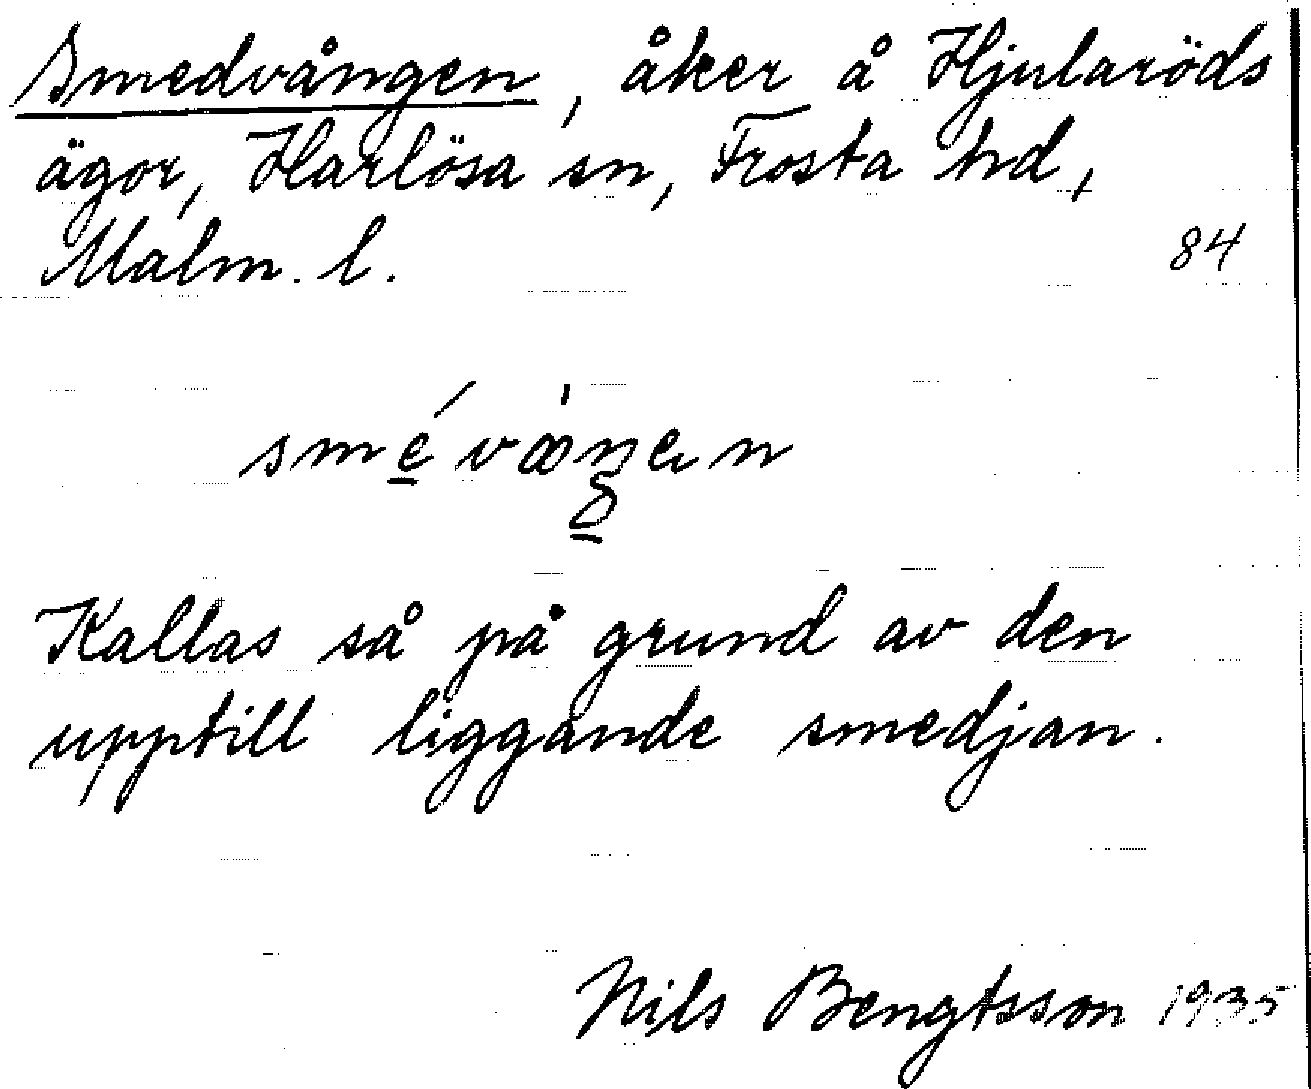 Smedvången, åker å Hjularöds
ägor, Harlösa sn, Frosta hd,
Malm. l.
84
Kallas så på grund av den
upptill liggande smedjan.
Nils Bengtsson 1935